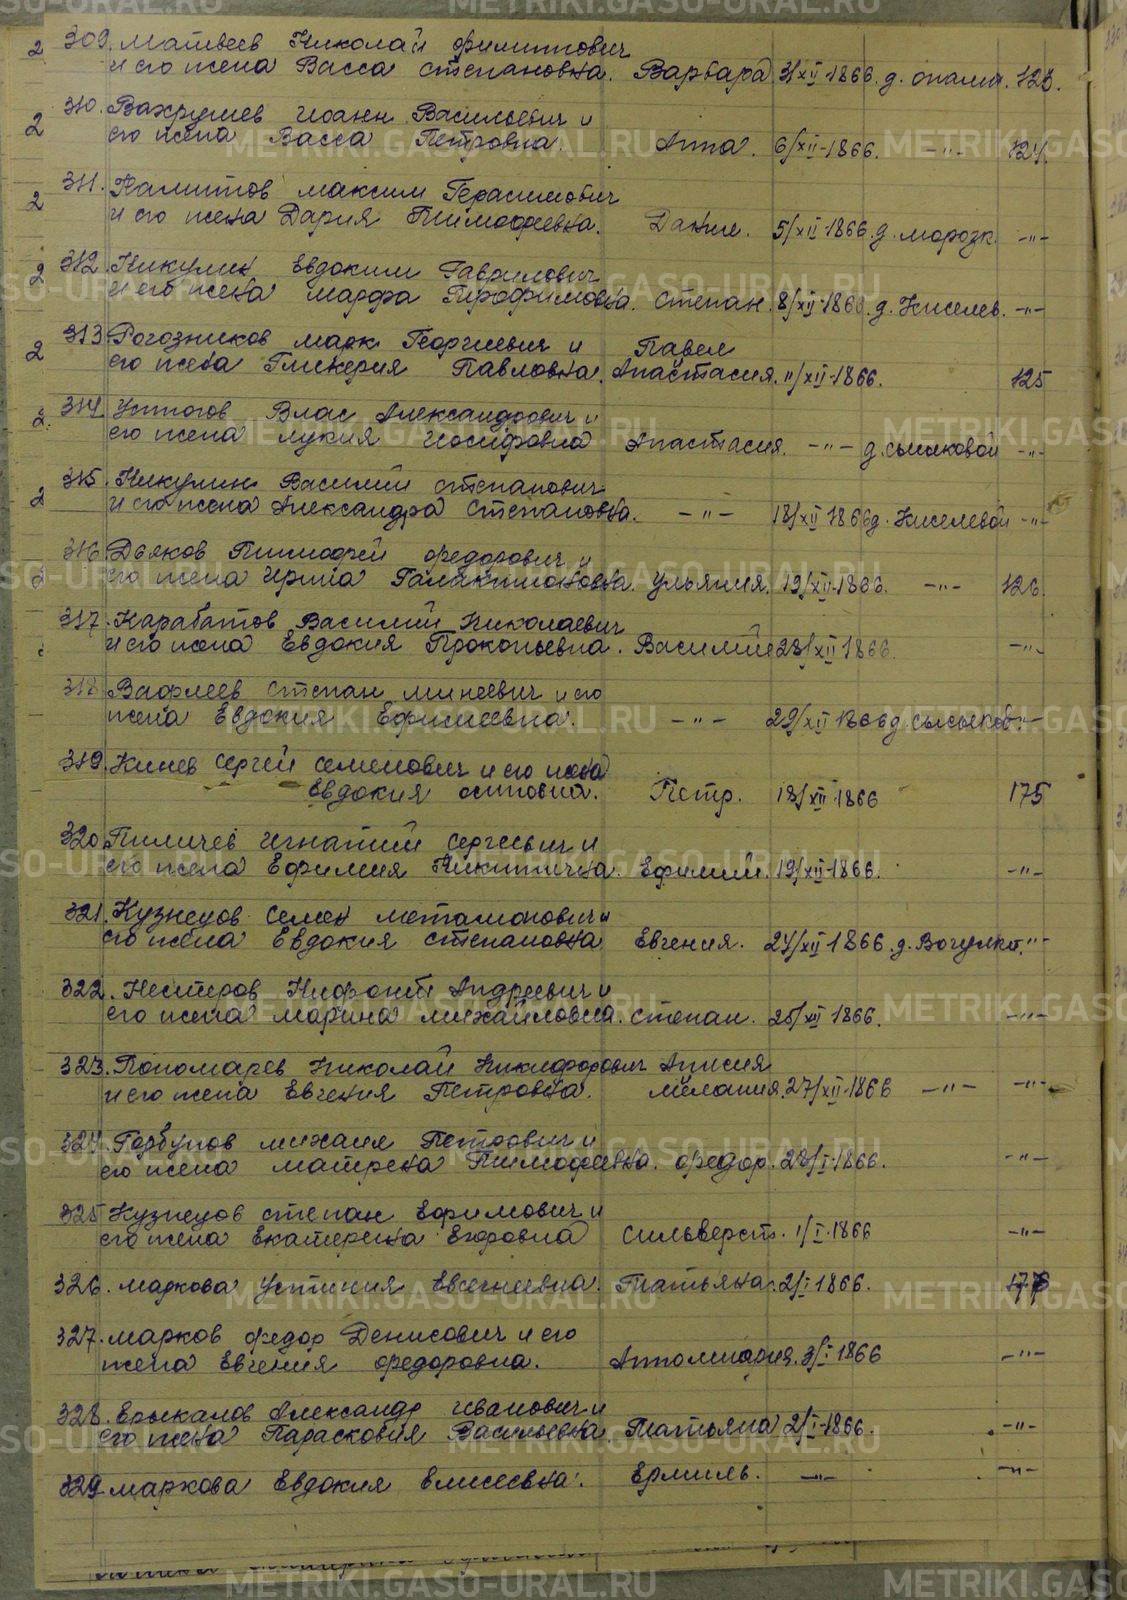 2 309. Матвеев Николай Филиппович
и его жена Васса Степановна. Варвара 31/XII-1866. д.
2 310. Вахрушев Иоанн Васильевич и
его жена Васса Петровна. Анна. 6/XII-1866. -"- 124.
2 311. Максим Герасимович
и его жена Дария Тимофеевна. 5/XII-1866. д. Морозк. -"-
2 312. Никулин Евдоким Гаврилович
и его жена Марфа Трофимовна. Степан. 8/XII-1866. д. Киселев. -"-
2 313. Рогозников Марк Георгиевич и Павел
его жена Гликерия Павловна. Анастасия. 11/XII-1866. 125
2. 314. Устюгов Влас Александрович и
его жена Лукия Иосифовна Анастасия. -"- д. -"-
2 315. Никулин Василий Степанович
и его жена Александра Степановна. -"- 18/XII-1866 д. Киселевой -"-
316. Дьяков Тимофей Федорович и
его жена Ирина Галактионовна. Ульяния. 19/XII-1866. -"- 126.
317. Карабатов Василий Николаевич
и его жена Евдокия Прокопьевна. Василий 28/XII-1866. -"-
318. Вафлеев Степан Минеевич и его
жена Евдокия Ефимеевна. -"- 29/XII-1866 д. -"-
319. Кинев Сергей Семенович и его жена
Евдокия Осиповна. Петр. 18/XII-1866 175
320. Пиличев Игнатий Сергеевич и
его жена Ефимия Никитична. Ефимий. 19/XII-1866. -"-
321. Кузнецов Семен и
его жена Евдокия Степановна Евгения. 24/XII-1866. д. Вогулко. -"-
322. Нестеров Нифонт Андреевич и
его жена Марина Михайловна. Степан. 25/XII-1866. -"-
323. Пономарев Николай Никифорович Анисия
и его жена Евгения Петровна. Мелания. 27/XII-1866 -"- -"-
324. Горбунов Михаил Петрович и
его жена Матрена Тимофеевна. Федор. 28/I-1866. -"-
325. Кузнецов Степан Ефимович и
его жена Екатерина Егоровна Сильверст. 1/I-1866 -"-
326. Маркова Устиния Евгениевна. Татьяна. 2/I-1866. 176
327. Марков Федор Денисович и его
жена Евгения Федоровна. Апполинария. 3/I-1866 -"-
328. Ерыкалов Александр Иванович и
его жена Парасковия Васильевна. Татьяна 2/I-1866. -"-
329. Маркова Евдокия Елисеевна. Ермиль. -"- -"-
METRIKI.GASO-URAL.RU